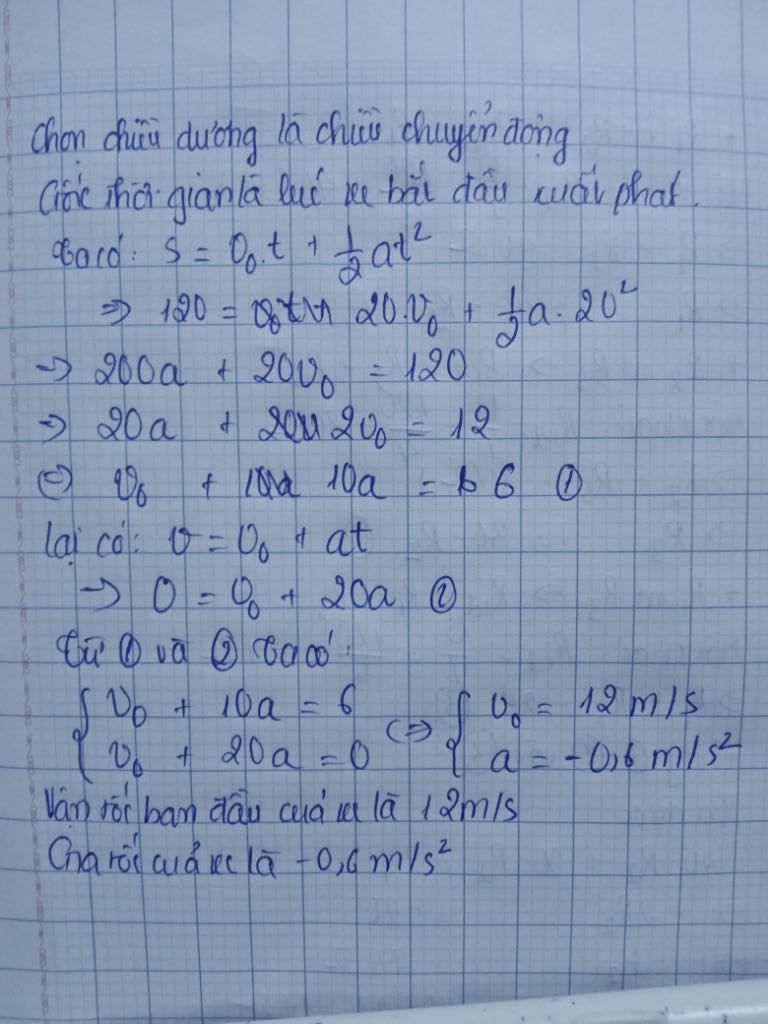 Chọn chiều dương là chiều chuyển động
Gốc thời gian là lúc xe bắt đầu xuất phát.
Ta có: s = v₀.t + ½at²
⇒ 120 = 20.v₀ + ½a.20²
→ 200a + 20v₀ = 120
→ 20a + 2v₀ = 12
⇔ v₀ + 10a = 6 ①
Lại có: v = v₀ + at
→ 0 = v₀ + 20a ②
Từ ① và ② ta có:
{ v₀ + 10a = 6 ⇔ { v₀ = 12 m/s
{ v₀ + 20a = 0 { a = -0,6 m/s²
Vận tốc ban đầu của xe là 12m/s
Gia tốc của xe là -0,6 m/s²